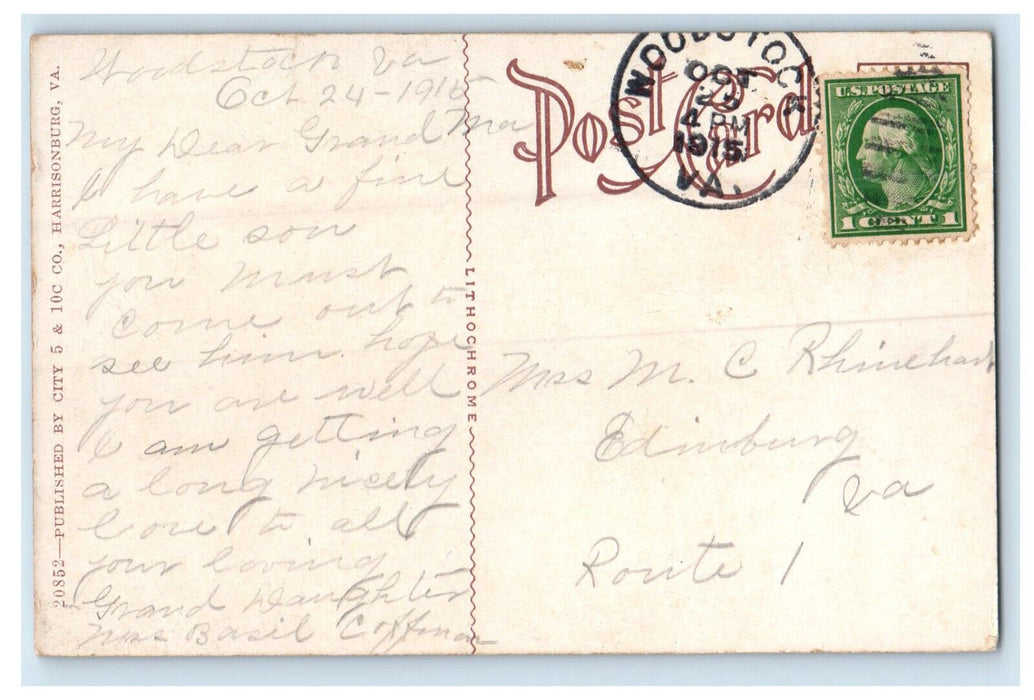 Woodstock Va
Oct 24-1915
My Dear Grand Ma
I have a fine
Little son
you must
come out to
see him. hope
you are well
I am getting
a long nicely
Love to all
your loving
Grand Daughter
Mrs Basil Coffman
20852—PUBLISHED BY CITY 5 & 10C CO., HARRISONBURG, VA.
LITHOCHROME
Post Card
WOODSTOCK
OCT
4 PM
1915
VA.
U.S. POSTAGE
1 CENT 1
Mrs M. C Rhinehart
Edinburg
Va
Route 1